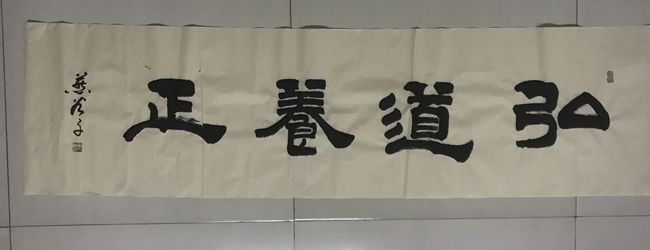 弘道養正